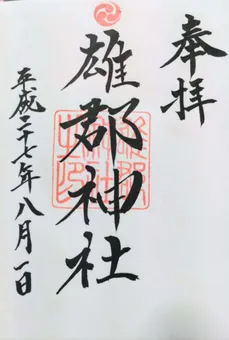 奉拝
雄郡神社
平成二十七年八月一日